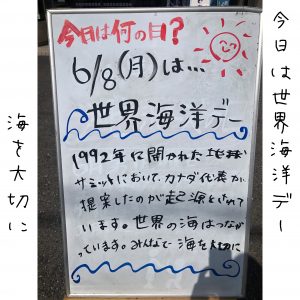 今日は世界海洋デー
今日は何の日?
6/8(月)は...
世界海洋デー
1992年に開かれた地球
サミットにおいて、カナダ代表が
提案したのが起源とされて
います。世界の海はつなが
っています。みんなで海を大切に
海を大切に